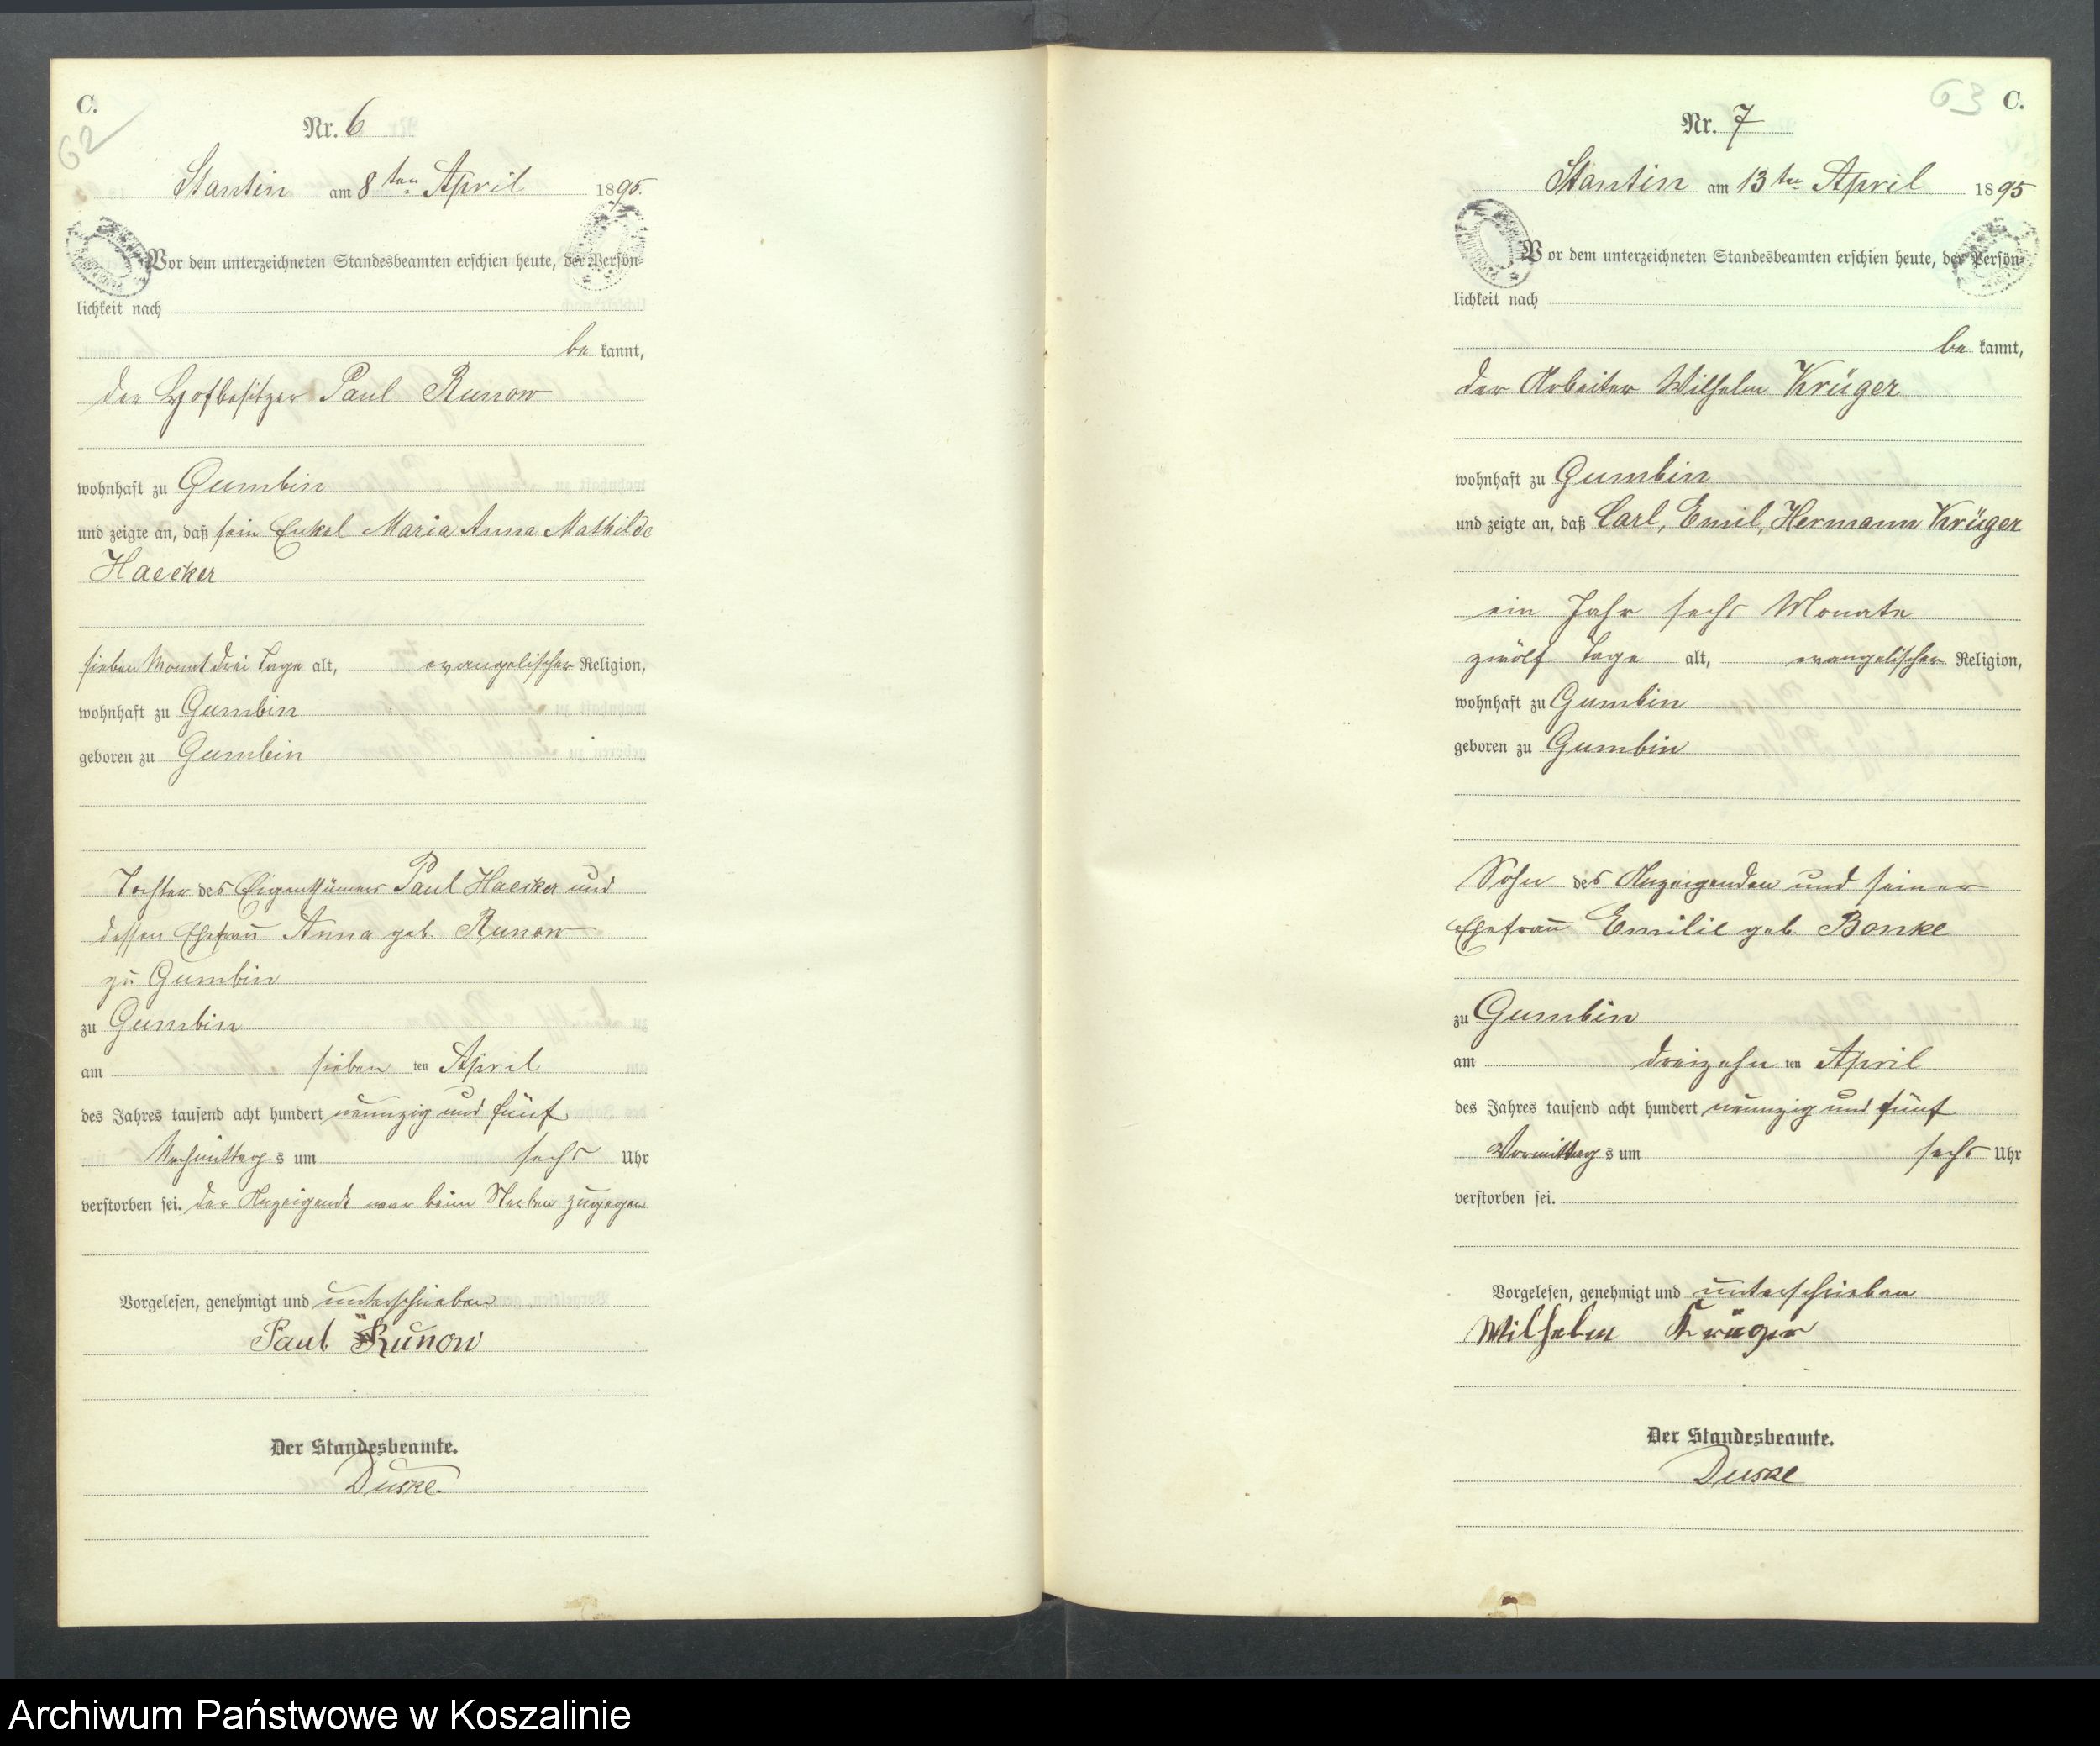 C.
62
Nr. 6
Stantin am 8ten April 1895.
Vor dem unterzeichneten Standesbeamten erschien heute, der Persön-
lichkeit nach
be kannt,
der Hofbesitzer Paul Runow
wohnhaft zu Gumbin
und zeigte an, daß sein Enkel Maria Anna Mathilde
Haecker
sieben Monat drei Tage alt, evangelischer Religion,
wohnhaft zu Gumbin
geboren zu Gumbin
Tochter des Eigenthümers Paul Haecker und
dessen Ehefrau Anna geb. Runow
zu Gumbin
zu Gumbin
am sieben ten April
des Jahres tausend acht hundert neunzig und fünf
Nachmittags um sechs Uhr
verstorben sei. der Anzeigende war beim Sterben zugegen
Vorgelesen, genehmigt und unterschrieben
Paul Runow
Der Standesbeamte.
Duske.
63
C.
Nr. 7
Stantin am 13ten April 1895
Vor dem unterzeichneten Standesbeamten erschien heute, der Persön-
lichkeit nach
be kannt,
der Arbeiter Wilhelm Krüger
wohnhaft zu Gumbin
und zeigte an, daß Carl, Emil, Hermann Krüger
ein Jahr sechs Monate
zwölf Tage alt, evangelischer Religion,
wohnhaft zu Gumbin
geboren zu Gumbin
Sohn des Anzeigenden und seiner
Ehefrau Emilie geb. Bonke
zu Gumbin
am dreizehn ten April
des Jahres tausend acht hundert neunzig und fünf
Vormittags um sechs Uhr
verstorben sei.
Vorgelesen, genehmigt und unterschrieben
Wilhelm Krüger
Der Standesbeamte.
Duske
Archiwum Państwowe w Koszalinie